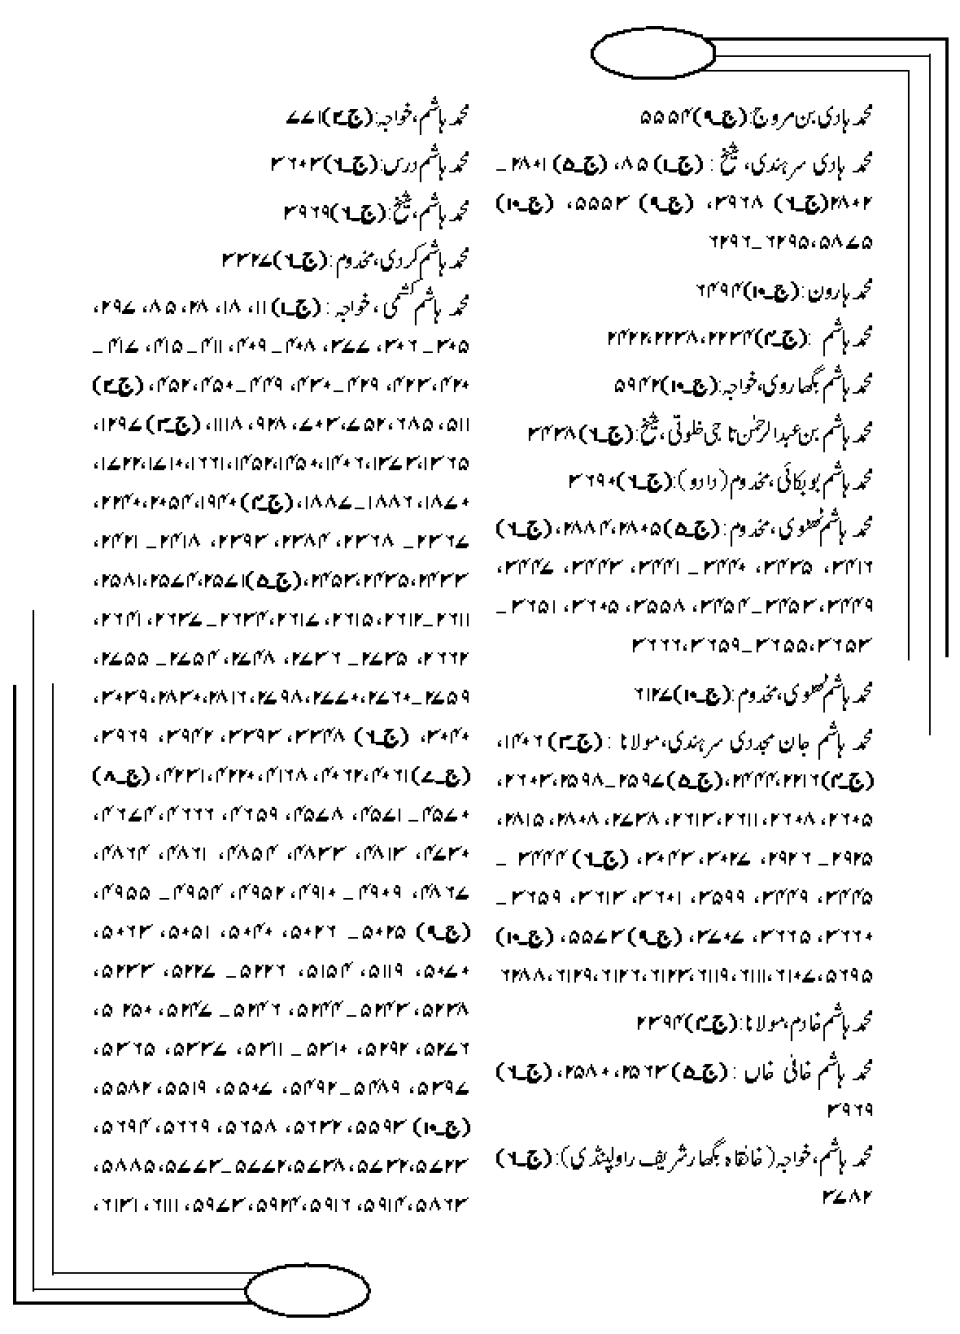 محمد ہادی بن مروج:(ج۔۹)۵۵۵۴
محمد ہادی سرہندی، شیخ : (ج۔۱)۸۵، (ج۔۵)۲۸۰۱۔
۲۸۰۲(ج۔۶) ۳۹۶۸، (ج۔۹) ۵۵۵۳، (ج۔۱۰)
۵۸۷۵، ۶۲۹۵۔۶۲۹۶
محمد ہارون:(ج۔۱۰)۶۴۹۴
محمد ہاشم :(ج۔۴)۲۲۳۴، ۲۲۳۸، ۲۴۲۲
محمد ہاشم بگھاروی، خواجہ:(ج۔۱۰)۵۹۴۲
محمد ہاشم بن عبدالرحمٰن تاجی خلوتی، شیخ:(ج۔۶)۳۴۳۸
محمد ہاشم بوبکائی، مخدوم(دادو):(ج۔۶)۳۶۹۰
محمد ہاشم ٹھٹوی، مخدوم:(ج۔۵)۲۸۰۵، ۲۸۸۴، (ج۔۶)
۳۴۱۶، ۳۴۳۵، ۳۴۴۰۔ ۳۴۴۱، ۳۴۴۳، ۳۴۴۷،
۳۴۴۹، ۳۴۵۳۔۳۴۵۴، ۳۵۵۸، ۳۶۰۵، ۳۶۵۱۔
۳۶۵۳، ۳۶۵۵۔۳۶۵۹، ۳۶۶۶
محمد ہاشم ٹھٹوی، مخدوم:(ج۔۱۰)۶۱۲۷
محمد ہاشم جان مجددی سرہندی، مولانا :(ج۔۳)۱۴۰۶،
(ج۔۴)۲۲۱۶، ۲۴۴۴، (ج۔۵)۲۵۹۷۔۲۵۹۸، ۲۶۰۳،
۲۶۰۵، ۲۶۰۸، ۲۶۱۱، ۲۶۱۳، ۲۷۳۸، ۲۸۰۸، ۲۸۱۵،
۲۹۲۵۔ ۲۹۲۶، ۳۰۲۷، ۳۰۴۳، (ج۔۶) ۳۴۴۴۔
۳۴۴۵، ۳۴۴۹، ۳۵۹۹، ۳۶۰۱، ۳۶۱۳، ۳۶۵۹۔
۳۶۶۰، ۳۶۶۵، ۳۷۰۷، (ج۔۹)۵۵۷۳، (ج۔۱۰)
۵۶۹۵، ۶۱۰۷، ۶۱۱۱، ۶۱۱۹، ۶۱۲۳، ۶۱۲۶، ۶۱۲۹، ۶۲۸۸
محمد ہاشم خادم، مولانا:(ج۔۴)۲۳۹۴
محمد ہاشم خانی خاں :(ج۔۵)۲۵۶۳، ۲۵۸۰، (ج۔۶)
۳۹۶۹
محمد ہاشم، خواجہ(خانقاہ بگھار شریف راولپنڈی):(ج۔۶)
۳۷۸۲
محمد ہاشم، خواجہ:(ج۔۲)۷۷۱
محمد ہاشم درس:(ج۔۶)۳۶۰۳
محمد ہاشم، شیخ:(ج۔۶)۳۹۶۹
محمد ہاشم کردی، مخدوم:(ج۔۶)۳۳۲۷
محمد ہاشم کشمی، خواجہ :(ج۔۱)۱۱، ۱۸، ۲۸، ۸۵، ۲۹۷،
۳۰۵۔ ۳۰۶، ۳۷۷، ۴۰۸۔ ۴۰۹، ۴۱۱۔ ۴۱۵، ۴۱۷۔
۴۲۰، ۴۲۳، ۴۲۹۔ ۴۳۰، ۴۴۹۔ ۴۵۰، ۴۵۲، (ج۔۲)
۵۱۱، ۵۸۵، ۶۵۲، ۷۰۳، ۹۲۸، ۱۱۱۸، (ج۔۳)۱۲۹۷،
۱۳۶۵، ۱۳۷۳، ۱۴۰۶، ۱۴۵۰، ۱۴۵۲، ۱۶۶۱، ۱۷۱۰، ۱۷۲۲،
۱۸۷۰، ۱۸۸۶۔۱۸۸۷، (ج۔۴)۱۹۴۰، ۲۰۵۴، ۲۲۴۰،
۲۳۶۷۔ ۲۳۶۸، ۲۳۸۴، ۲۳۹۳، ۲۴۱۸۔ ۲۴۲۱،
۲۴۳۳، ۲۴۳۵، ۲۴۵۳، (ج۔۵)۲۵۷۱، ۲۵۷۴، ۲۵۸۱،
۲۶۱۱۔۲۶۱۲، ۲۶۱۵، ۲۶۱۷، ۲۶۳۴۔۲۶۳۷، ۲۶۴۱،
۲۶۶۲، ۲۷۳۵۔ ۲۷۳۶، ۲۷۴۸، ۲۷۵۴۔ ۲۷۵۵،
۲۷۵۹۔۲۷۶۰، ۲۷۷۰، ۲۷۹۸، ۲۸۱۶، ۲۸۳۰، ۳۰۳۹،
۳۰۴۰، (ج۔۶) ۳۳۴۸، ۳۳۹۳، ۳۹۴۲، ۳۹۶۹،
(ج۔۷)۴۰۶۱، ۴۰۶۲، ۴۱۶۸، ۴۲۲۰، ۴۲۳۱، (ج۔۸)
۴۵۷۰۔ ۴۵۷۱، ۴۵۷۸، ۴۶۵۹، ۴۶۶۶، ۴۷۶۷،
۴۷۳۰، ۴۸۱۳، ۴۸۳۳، ۴۸۵۴، ۴۸۶۱، ۴۸۶۴،
۴۸۶۷، ۴۹۰۹۔ ۴۹۱۰، ۴۹۵۲، ۴۹۵۴۔ ۴۹۵۵،
(ج۔۹) ۵۰۲۵۔ ۵۰۲۶، ۵۰۴۰، ۵۰۵۱، ۵۰۶۳،
۵۰۷۰، ۵۱۱۹، ۵۱۵۴، ۵۲۲۶۔ ۵۲۲۷، ۵۲۳۳،
۵۲۳۸، ۵۲۴۳۔ ۵۲۴۴، ۵۲۴۶۔ ۵۲۴۷، ۵۲۵۰،
۵۲۷۶، ۵۲۹۲، ۵۳۱۰۔ ۵۳۱۱، ۵۳۳۷، ۵۳۶۵،
۵۳۹۷، ۵۴۸۹۔۵۴۹۲، ۵۵۰۷، ۵۵۱۹، ۵۵۸۲،
(ج۔۱۰) ۵۵۹۳، ۵۶۳۲، ۵۶۵۸، ۵۶۶۹، ۵۶۹۴،
۵۷۲۳، ۵۷۳۲، ۵۷۳۸، ۵۷۷۲۔۵۷۷۳، ۵۸۸۵،
۵۸۶۳، ۵۹۱۴، ۵۹۱۶، ۵۹۲۴، ۵۹۷۳، ۶۱۱۱، ۶۱۳۱،